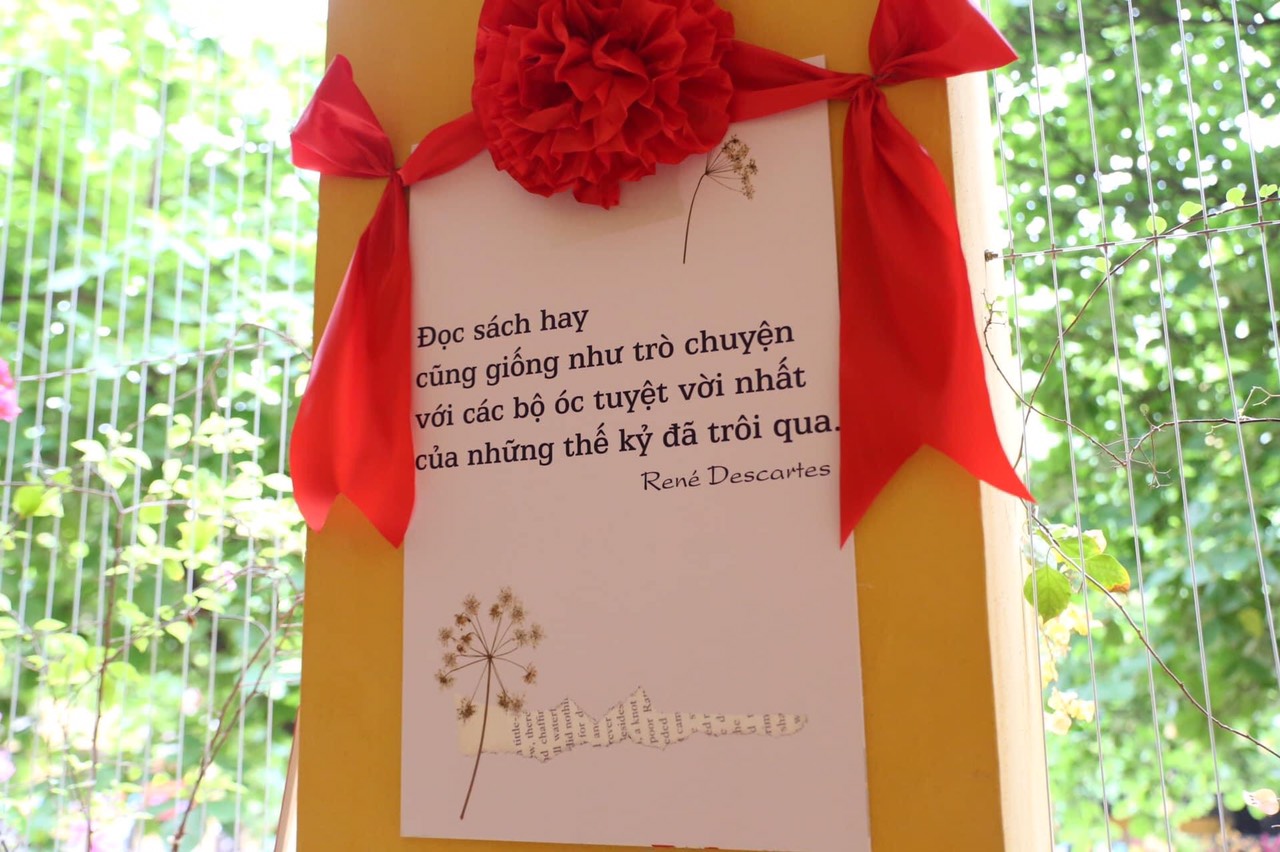 Đọc sách hay
cũng giống như trò chuyện
với các bộ óc tuyệt vời nhất
của những thế kỷ đã trôi qua.
René Descartes